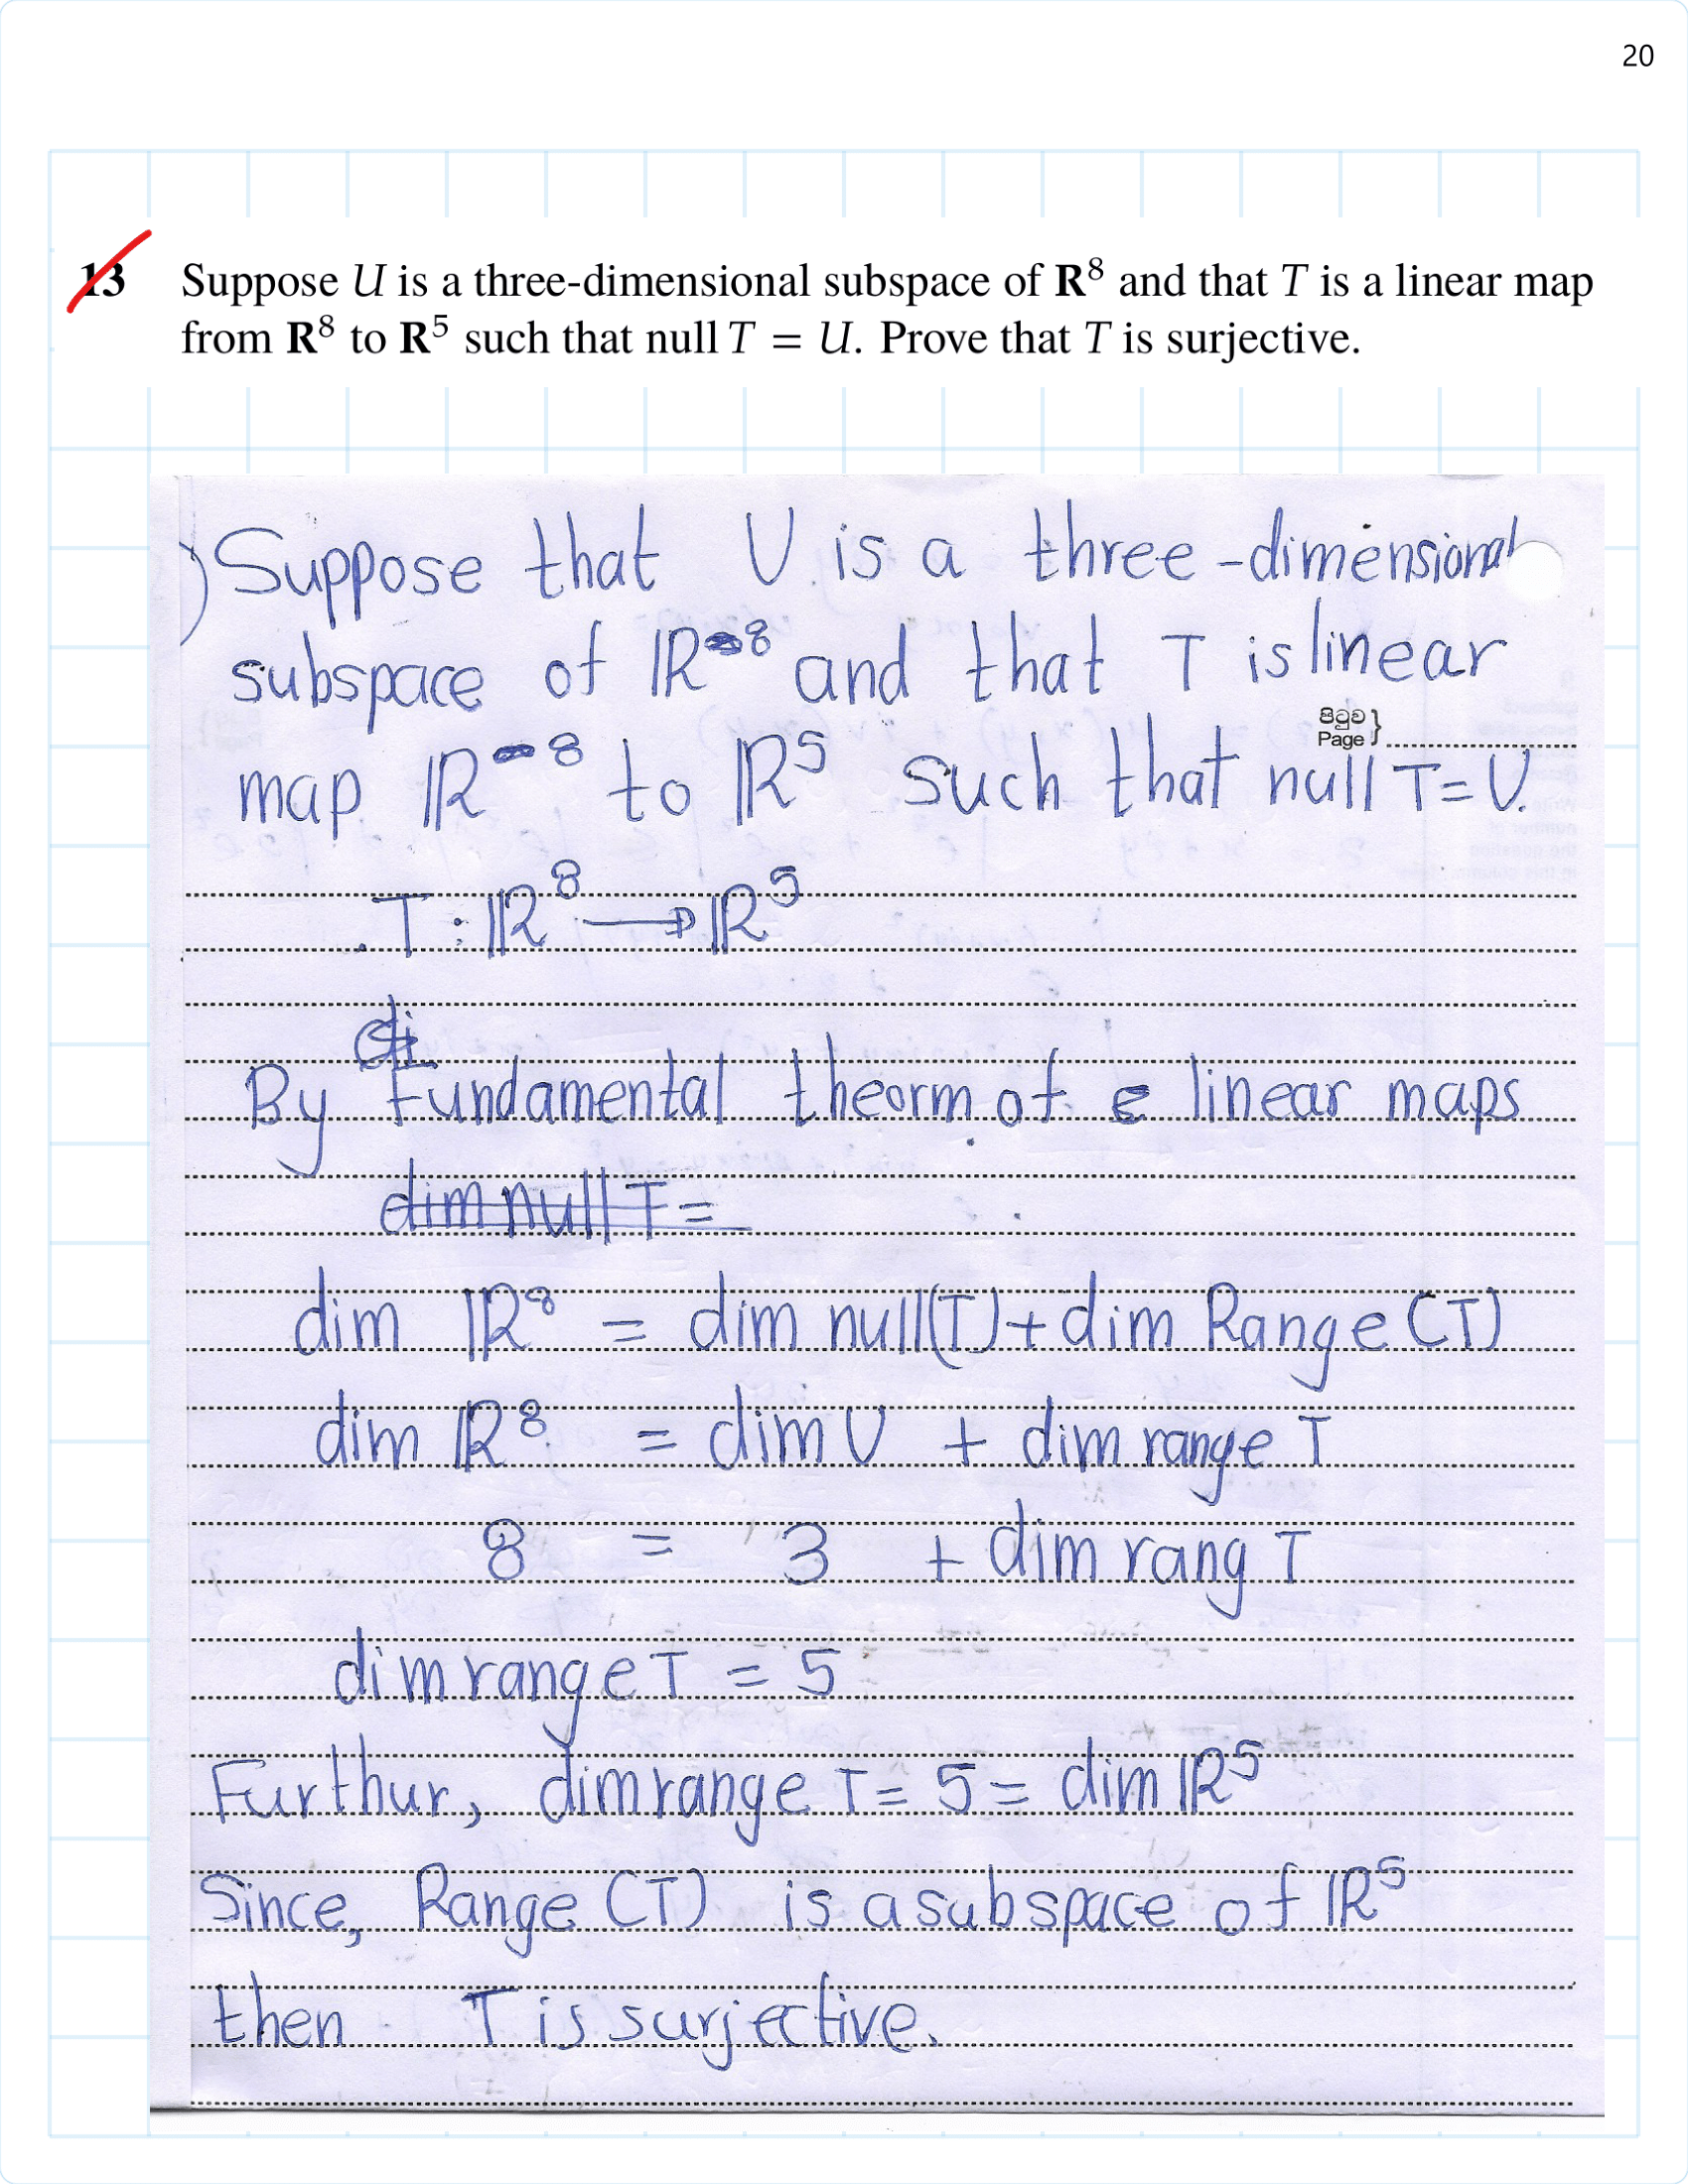 20
13 Suppose U is a three-dimensional subspace of R⁸ and that T is a linear map
from R⁸ to R⁵ such that null T = U. Prove that T is surjective.
) Suppose that U is a three-dimensional
subspace of ℝ⁸ and that T is linear
පිටුව
Page }
map ℝ⁸ to ℝ⁵ such that null T = U.
T : ℝ⁸ → ℝ⁵
By Fundamental theorm of linear maps
dim null T =
dim ℝ⁸ = dim null(T) + dim Range (T)
dim ℝ⁸ = dim U + dim range T
8 = 3 + dim rang T
dim range T = 5
Furthur, dim range T = 5 = dim ℝ⁵
Since, Range (T) is a subspace of ℝ⁵
then T is surjective.